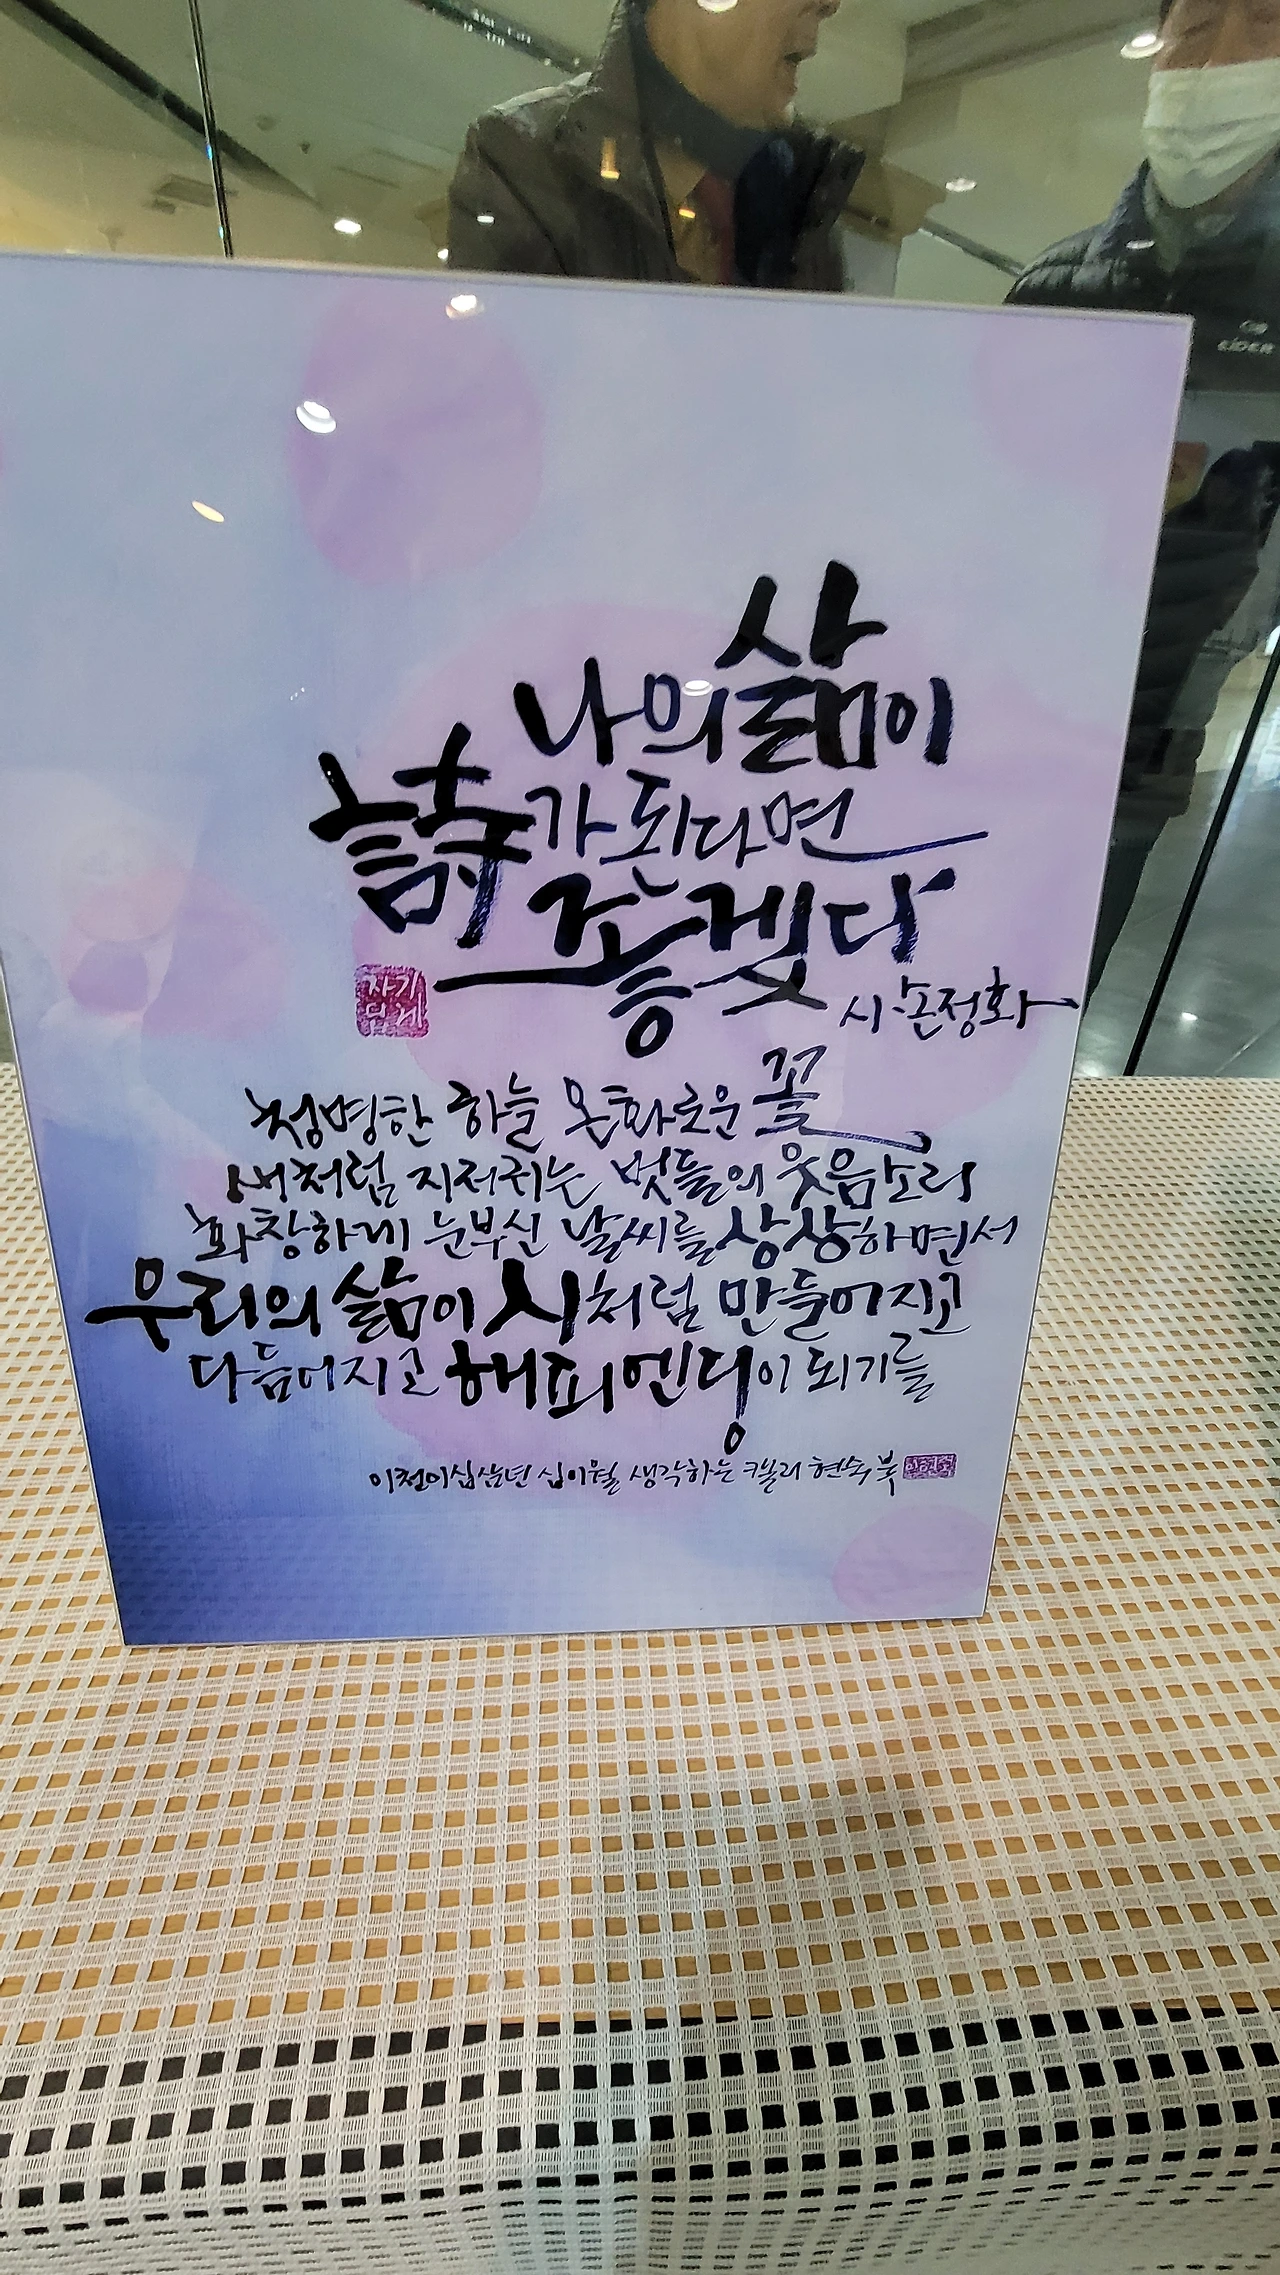 나의 삶이
詩가 된다면
좋겠다
시.손정화
청명한 하늘 온화로운 꽃
새처럼 지저귀는 벗들의 웃음소리
화창하게 눈부신 날씨를 상상하면서
우리의 삶이 시처럼 만들어지고
다듬어지고 해피엔딩이 되기를
이천이십삼년 십이월 생각하는 캘리 현숙 붓
EIDER